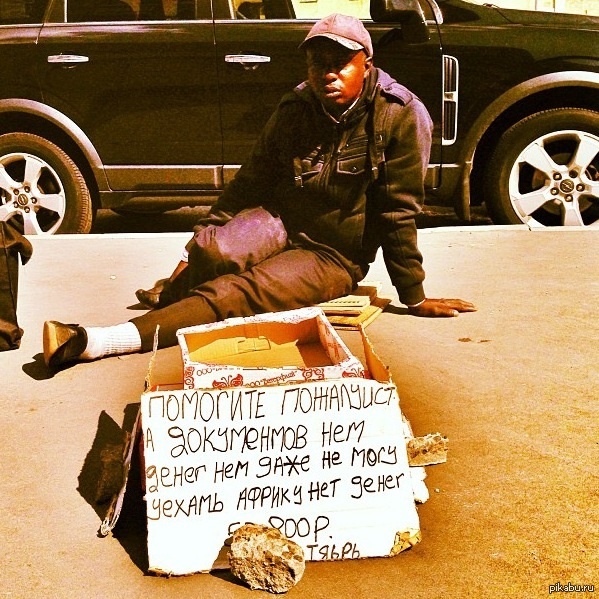 ПОМОГИТЕ ПОЖАЛУИСТ
А ДОКУМЕНТОВ НЕТ
ДЕНЕГ НЕТ ДАЖЕ НЕ МОГУ
УЕХАТЬ АФРИКУ НЕТ ДЕНЕГ
800Р.
pikabu.ru